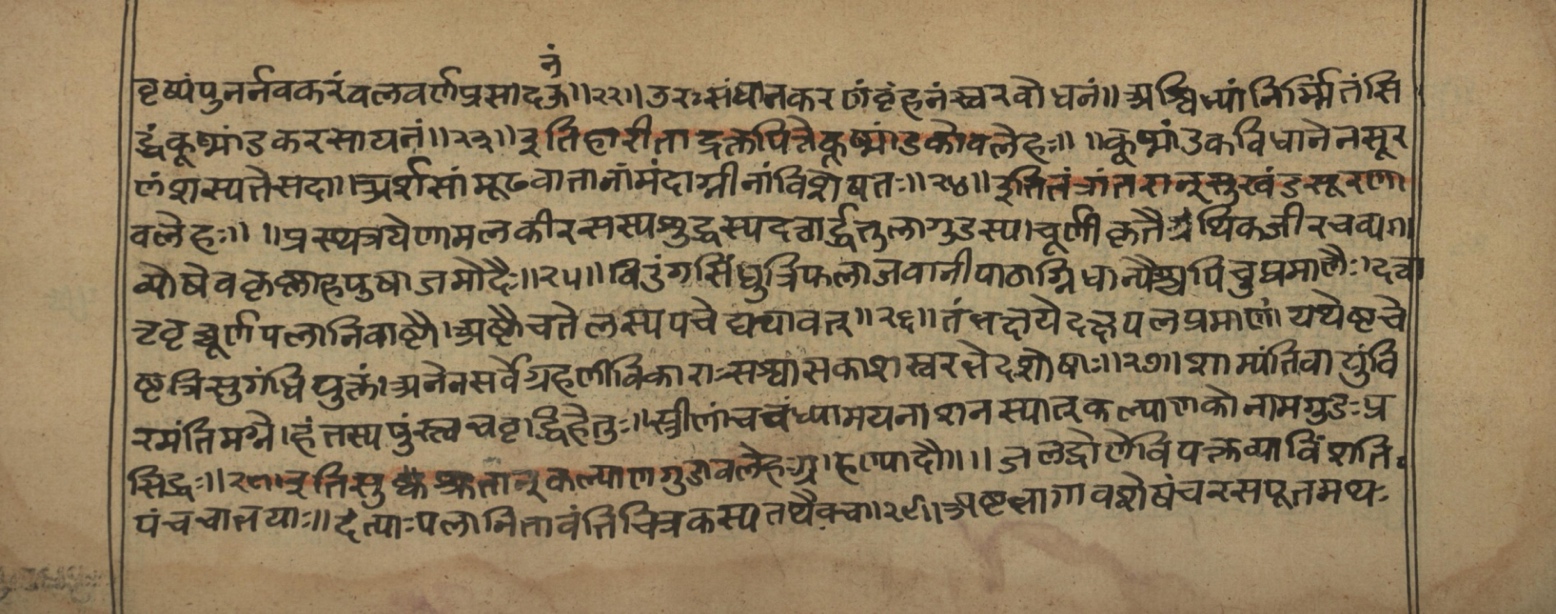 नं
वृष्यंपुनर्नवकरंवलवर्णप्रसादऊ॥२२॥उरःसंधानकरणंवृंहनंस्वरवोधनं॥अश्विभ्यांनिर्म्मितंसि
द्धंकूष्मांडकरसायनं॥२३॥इतिहारीताद्रक्तपित्तेकूष्मांडकोवलेहः॥ ॥कूष्मांडकविधानेनसूर
णंशस्यतेसदा॥अर्शसांमूढवातानांमंदाग्नीनांविशेषतः॥२४॥इतितंत्रांतरात्सुखंडसूरणा
वलेहः॥ ॥प्रस्थत्रयेणामलकीरसस्यशुद्धस्यदत्वार्द्धतुलागुडस्य।चूर्णीकृतैर्ग्रंथिकजीरचव्यग।
व्योषेवकृष्णाहपुषाजमोदैः॥२५॥विडंगसिंधुत्रिफलाजवानीपाठाग्निधान्यैश्चपिचुप्रमाणैः।दत्वा
टवृच्चूर्णपलानिवाष्टौ।अष्टौचतेलस्यपचेद्यथावत्॥२६॥तंभक्षयेदक्षपलप्रमाणं।यथेष्टचे
ष्टत्रिसुगंधियुक्तं।अनेनसर्वेग्रहणीविकाराःसश्वासकाशस्वरभेदशोषाः॥२७॥शाम्यंतिवायुंवि
रमंतिमग्ने।हंतस्यपुंस्त्वचवृद्धिहेतुः॥स्त्रीणांचवंध्यामयनाशनस्यात्कल्याणकोनामगुडःप्र
सिद्धः॥२८॥इतिसुश्रुतात्कल्याणगुडावलेहःग्राहण्यादौ॥ ॥जलेद्रोणेविपक्तव्याविंशति
पंचचाभयाः॥दंत्याःपलानितावंतिचित्रकस्यतथैवच॥२९॥अष्टभागावशेषंचरसपूतमथः